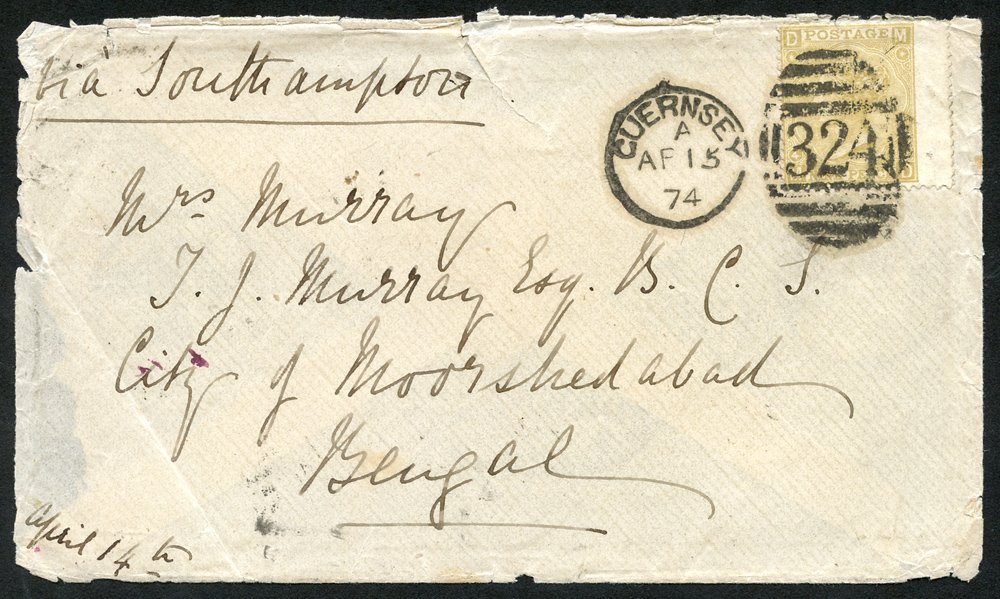 via Southampton
D POSTAGE M
GUERNSEY
A
AP 15
74
324
D
Mrs Murray
T. J. Murray Esq. B. C. S.
City of Moorshedabad
Bengal
April 14th